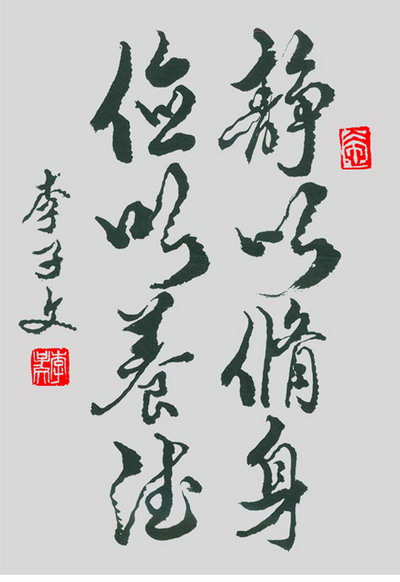 静以脩身
俭以養德
李子文